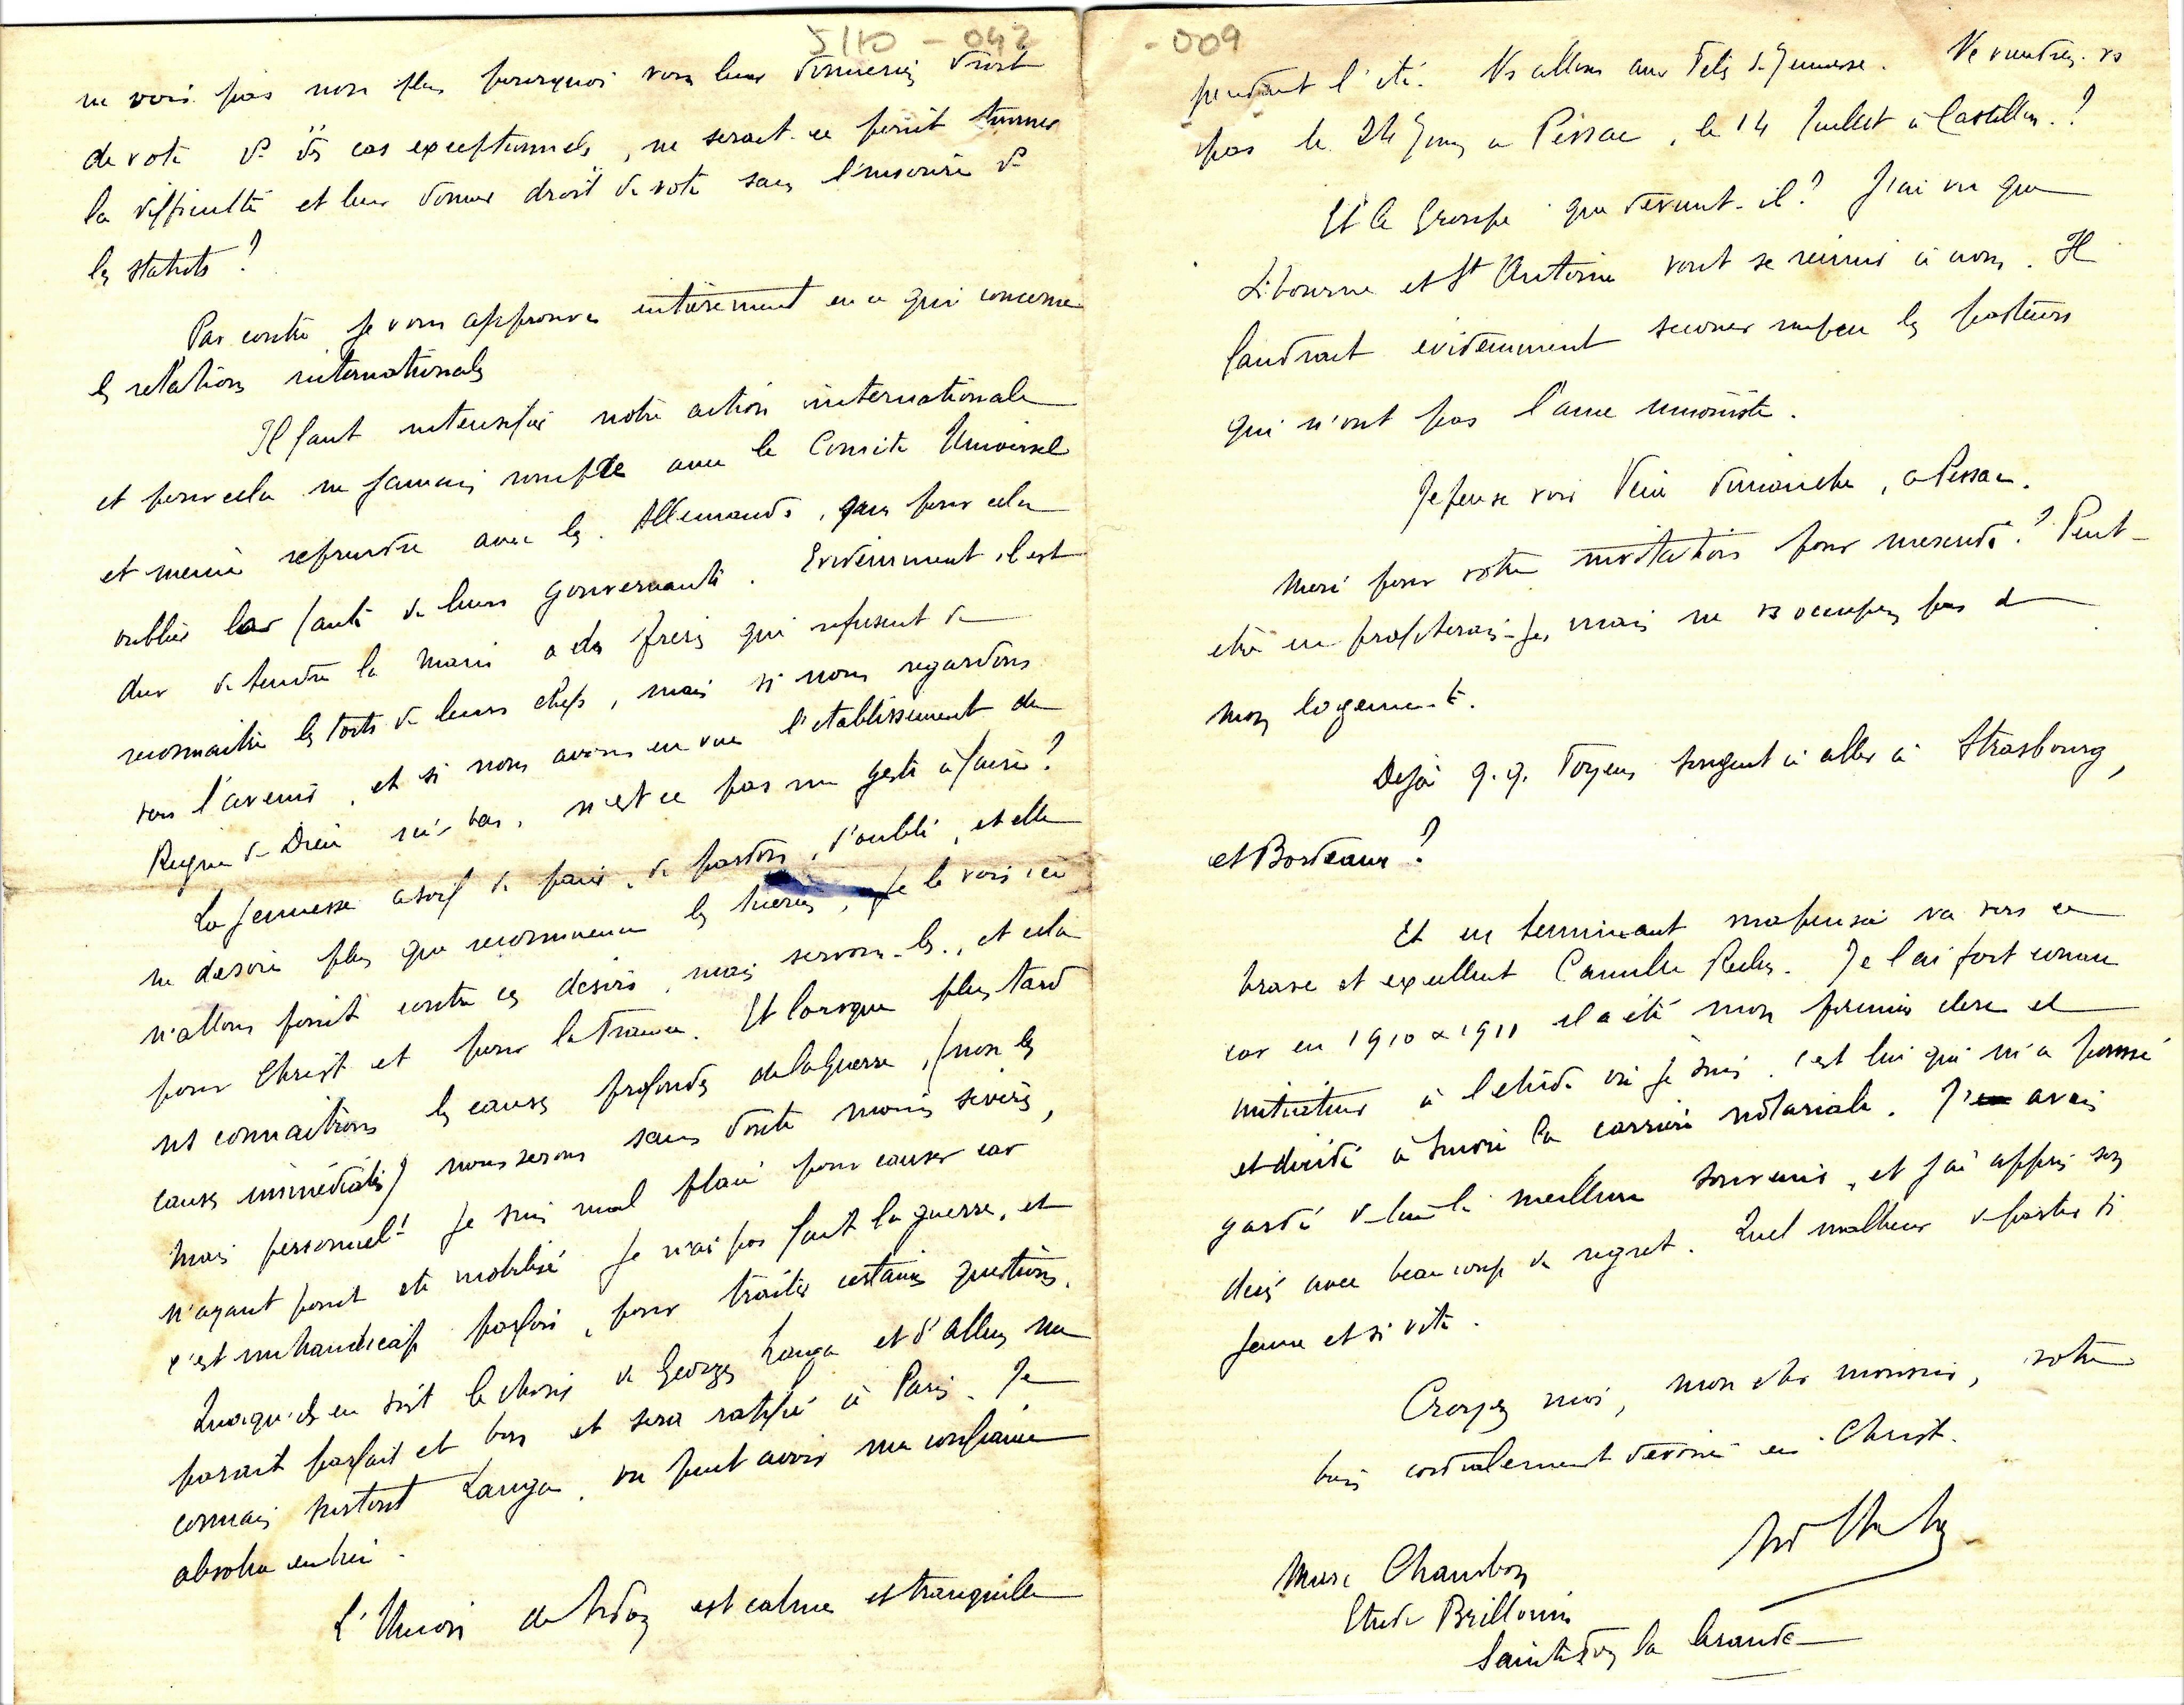 5110 - 042
ne vois pas non plus pourquoi vous leur donneriez droit
de vote ds des cas exceptionnels, ne serait-ce point tourner
la difficulté et leur donner droit de vote sans l'inscrire ds
les statuts ?
Par contre je vous approuve entièrement en ce qui concerne
les relations internationales
Il faut intensifier notre action internationale
et pour cela ne jamais rompre avec le Comité Universel
et même reprendre avec les Allemands, sans pour cela
oublier la faute de leurs gouvernants. Evidemment il est
dur de tendre la main a des frères qui refusent de
reconnaitre les torts de leurs chefs, mais si nous regardons
vers l'avenir, et si nous avons en vue l'établissement du
Règne de Dieu ici-bas, n'est ce pas un geste à faire ?
La jeunesse a soif de paix, de pardon, d'oubli, et elle
ne désire plus que recommence les tueries, je le vois ici
n'allons point contre ces désirs, mais servons-les, et cela
pour Christ et pour la France. Et lorsque plus tard
ns connaitrons les causes profondes de la Guerre, (non les
causes immédiates) nous serons sans doute moins sévères,
mais personnelt je suis mal placé pour causer car
n'ayant point été mobilisé je n'ai pas fait la guerre, et
c'est un handicap parfois, pour traiter certaines questions.
Quoiqu'il en soit le choix de Georges Lauga et d'Allen me
parait parfait et bon et sera ratifié à Paris. Je
connais surtout Lauga, on peut avoir une confiance
absolue en lui.
L'Union de Ardoz est calme et tranquille
- 009
pendant l'été. Ns allons aux Fêtes de Jeunesse. Ne viendrez-vs
pas le 24 Juin a Pessac, le 14 Juillet à Castillon. ?
Et le Groupe que devient-il ? J'ai vu que
Libourne et St Antoine vont se réunir à nous. Il
faudrait évidemment secouer un peu les pasteurs
qui n'ont pas l'âme unioniste.
Je pense voir Dimanche, a Pessac.
Merci pour votre invitation pour mercredi ? Peut-
être en profiterais-je, mais ne vs occupez pas de
mon logement.
Déjà q.q. Foyens songent à aller à Strasbourg,
et Bordeaux ?
Et en terminant ma pensée va vers ce
brave et excellent Camille. Je l'ai fort connu
car en 1910 & 1911 il a été mon premier clerc et
initiateur à l'étude où je suis. C'est lui qui m'a poussé
et décidé à suivre la carrière notariale. J'avais
gardé de lui le meilleur souvenir, et j'ai appris son
décès avec beaucoup de regret. Quel malheur de partir si
jeune et si vite.
Croyez moi, mon cher monsieur, votre
bien cordialement dévoué en Christ.
Marc Chambon
Etude Brillouin
Sainte Foy la Grande